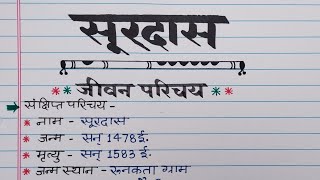 सूरदास
* * जीवन परिचय * *
→ संक्षिप्त परिचय -
* नाम - सूरदास
* जन्म - सन् 1478 ई.
* मृत्यु - सन् 1583 ई.
* जन्म स्थान - रुनकता ग्राम